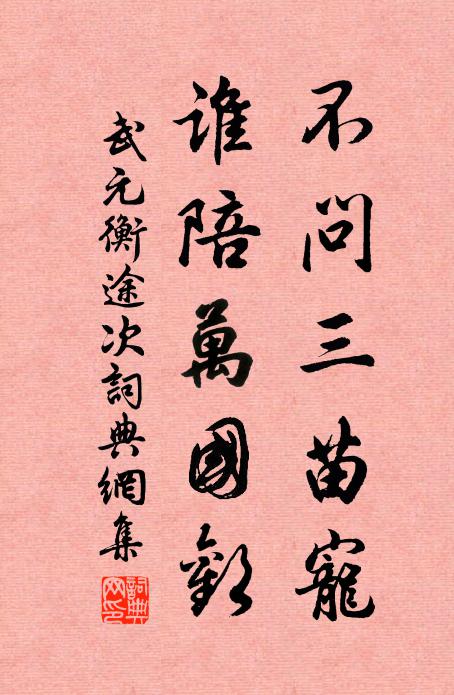 不問三苗寵
誰陪萬國歡
武元衡途次詞典網集
詞典網印